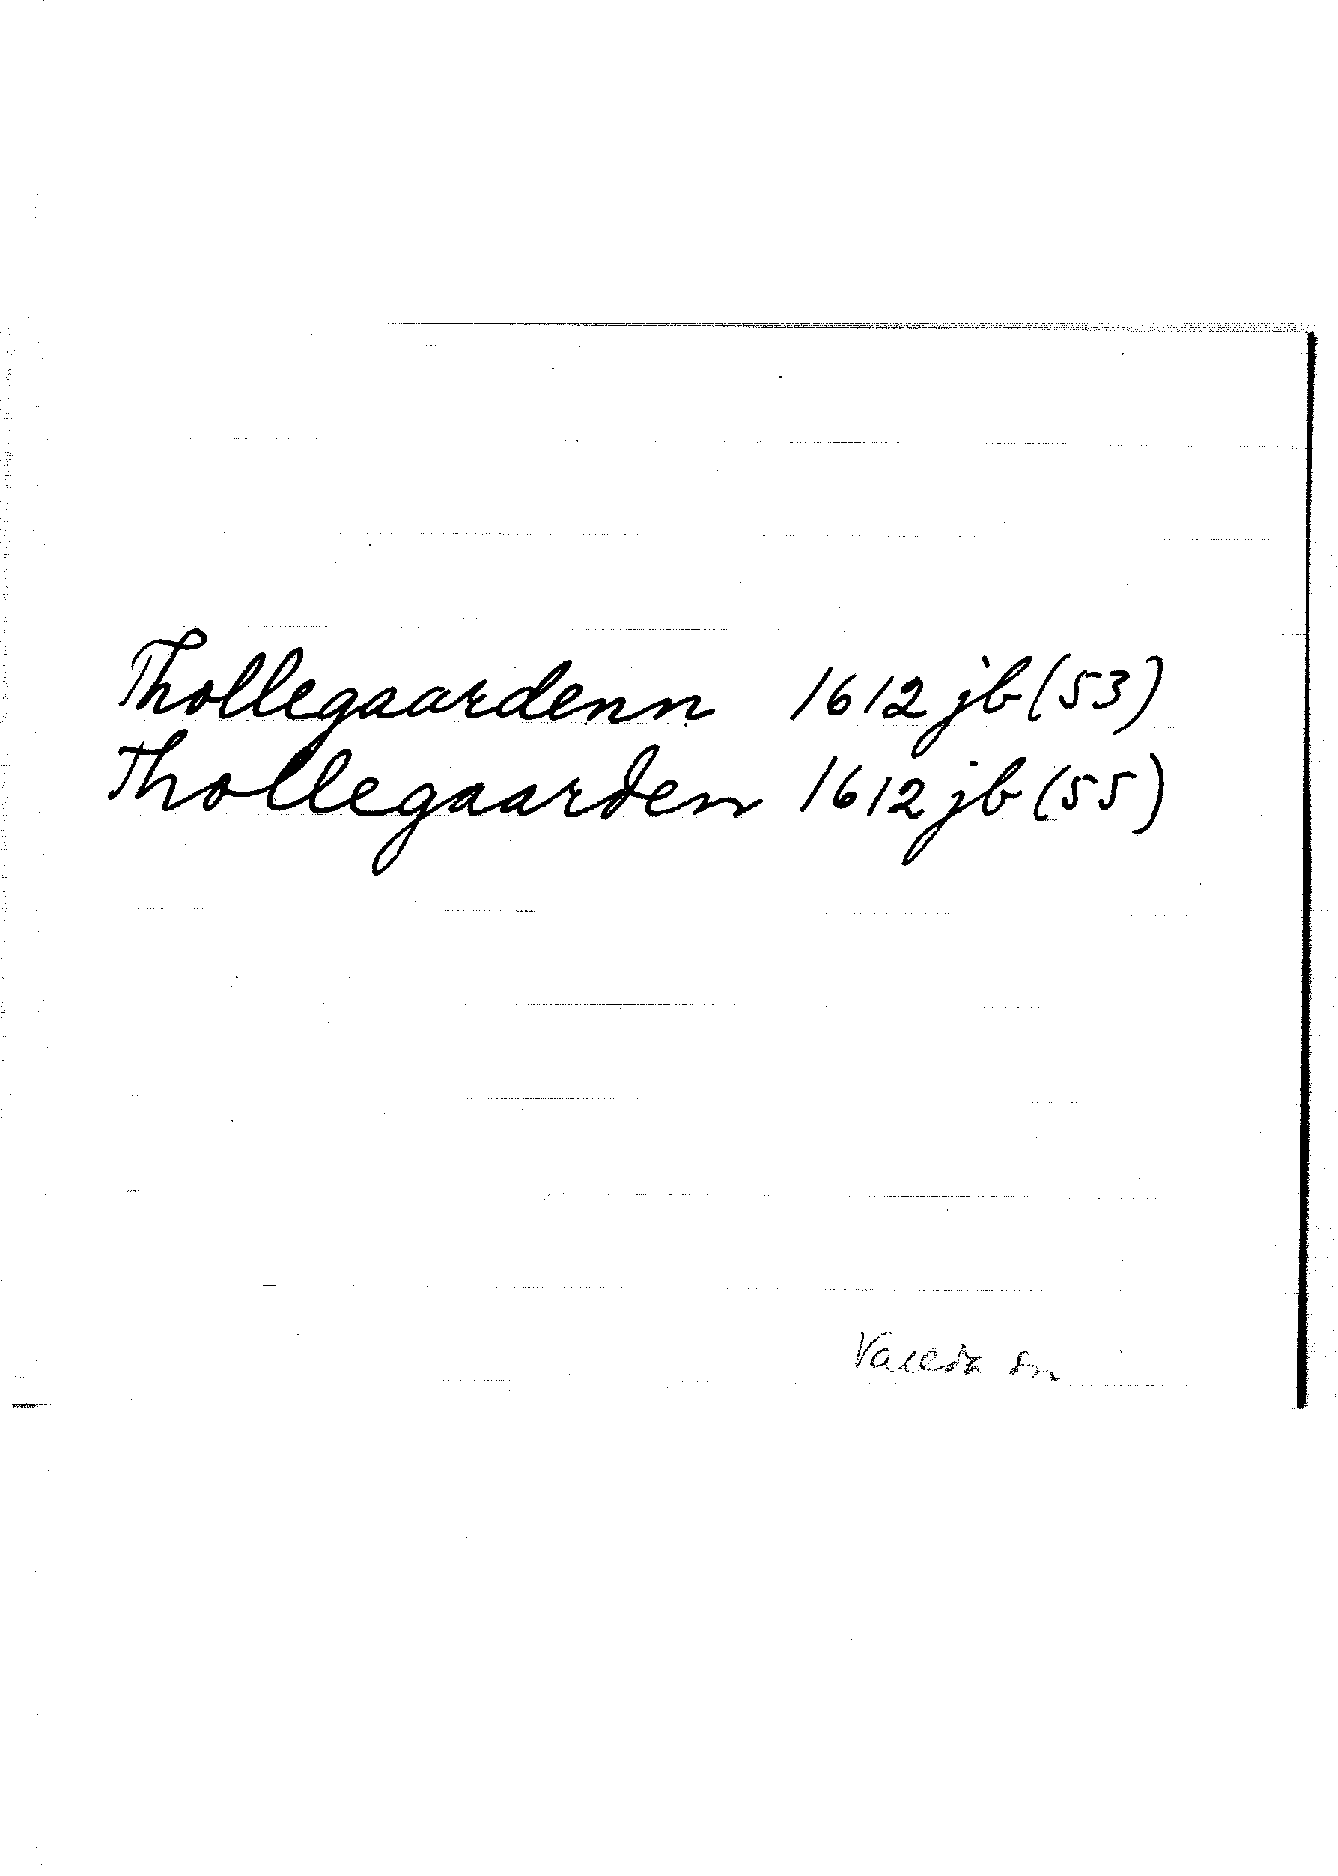 Thollegaardenn 1612 jb (53)
Thollegaarden 1612 jb (55)